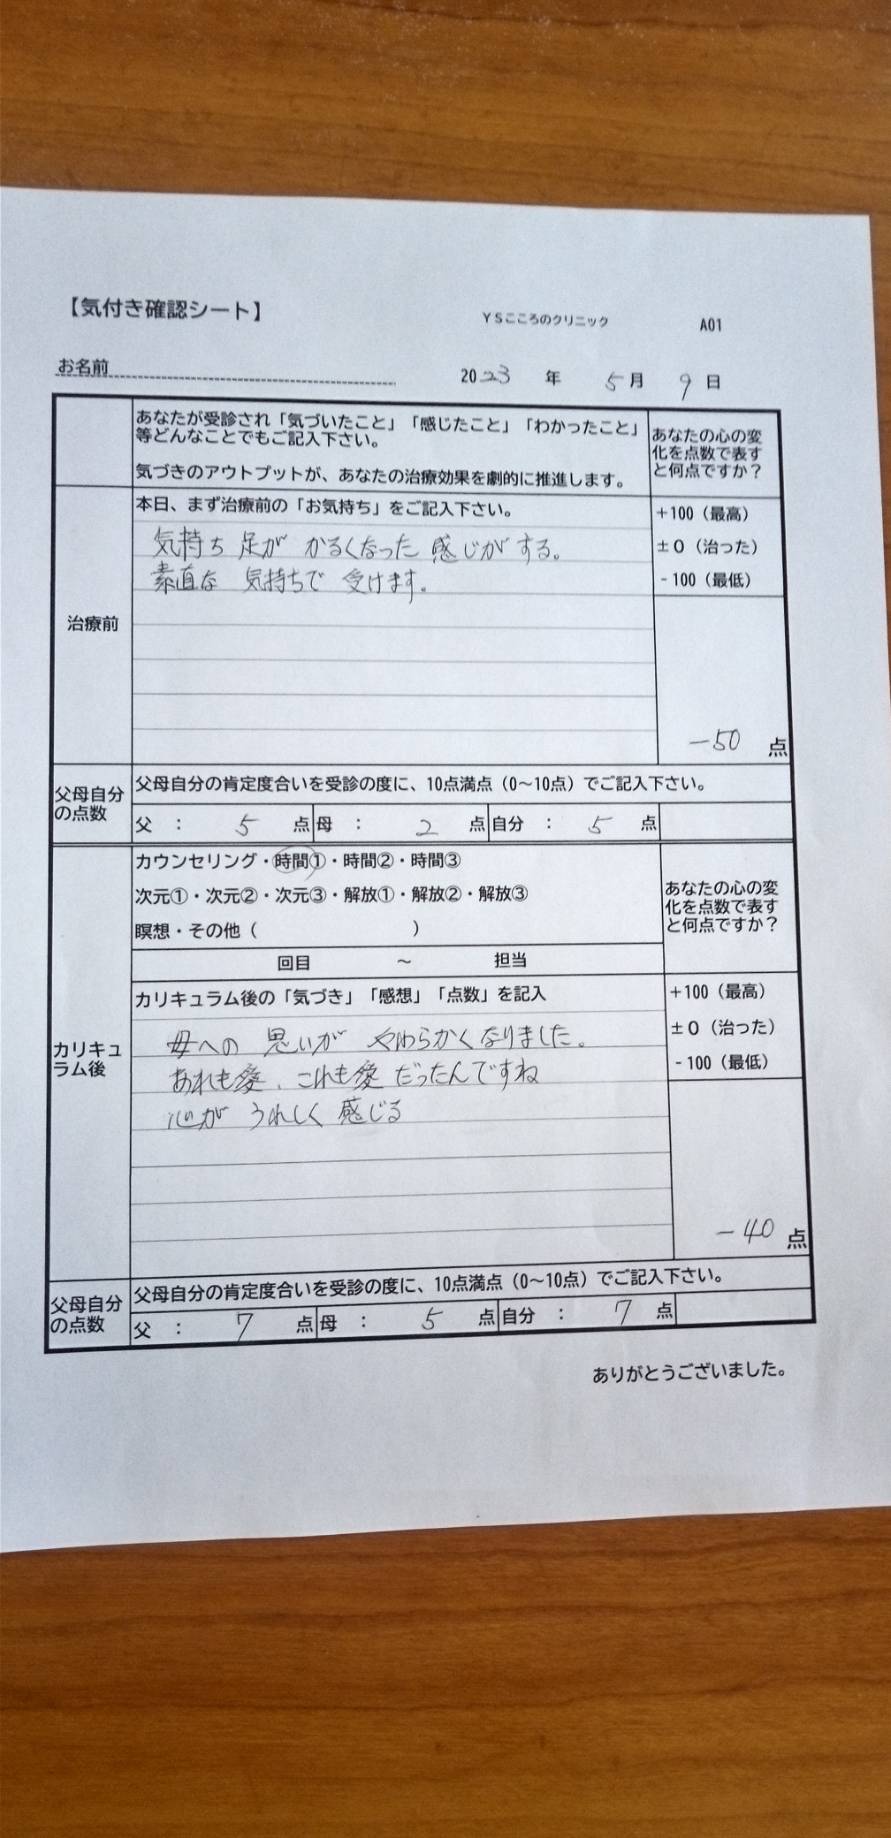 【気付き確認シート】
YSこころのクリニック
A01
お名前
2023 年 5月 9日
あなたが受診され「気づいたこと」「感じたこと」「わかったこと」
等どんなことでもご記入下さい。
気づきのアウトプットが、あなたの治療効果を劇的に推進します。
あなたの心の変
化を点数で表す
と何点ですか？
治療前
本日、まず治療前の「お気持ち」をご記入下さい。
気持ち 足が かるくなった 感じがする。
素直な 気持ちで 受けます。
+100（最高）
±0（治った）
-100（最低）
-50 点
父母自分
の点数
父母自分の肯定度合いを受診の度に、10点満点（0～10点）でご記入下さい。
父 ： 5 点 母 ： 2 点 自分 ： 5 点
カリキュ
ラム後
カウンセリング・時間①・時間②・時間③
次元①・次元②・次元③・解放①・解放②・解放③
瞑想・その他（ ）
回目 ～ 担当
あなたの心の変
化を点数で表す
と何点ですか？
カリキュラム後の「気づき」「感想」「点数」を記入
母への 思いが やわらかくなりました。
あれも愛、これも愛 だったんですね
心が うれしく 感じる
+100（最高）
±0（治った）
-100（最低）
-40 点
父母自分
の点数
父母自分の肯定度合いを受診の度に、10点満点（0～10点）でご記入下さい。
父 ： 7 点 母 ： 5 点 自分 ： 7 点
ありがとうございました。